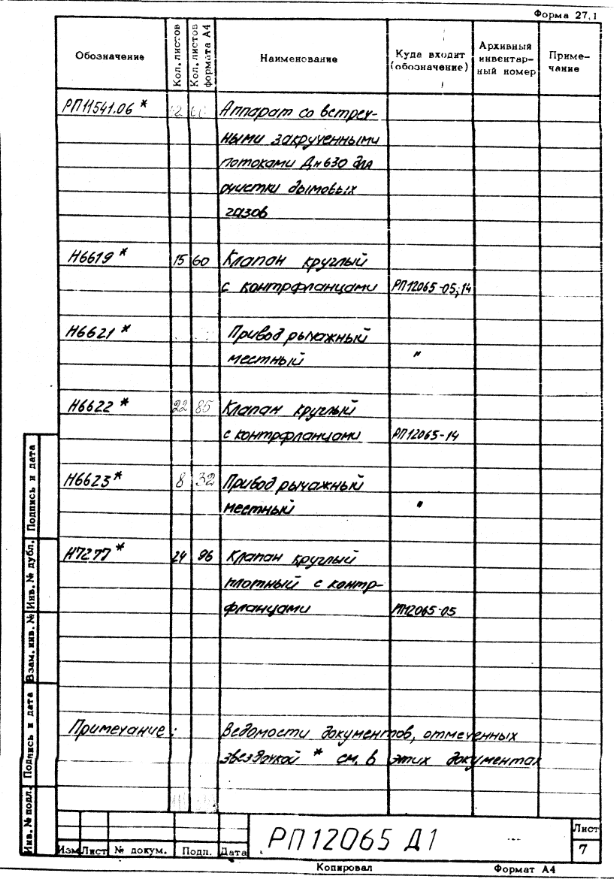 Форма 27,1
Обозначение
Кол. листов
Кол. листов формата А4
Наименование
Куда входит (обозначение)
Архивный инвентар-ный номер
Приме-чание
РП11541.06 * Аппарат со встреч-
ными закрученными
потоками Дн630 для
очистки дымовых
газов
Н6619 * 15 60 Клапан круглый
с контрфланцами РП12065-05;14
Н6621 * Привод рычажный
местный "
Н6622 * 22 85 Клапан круглый
с контрфланцами РП12065-14
Н6623 * 8 32 Привод рычажный
местный "
Н7277 * 24 96 Клапан круглый
плотный с контр-
фланцами РП12065-05
Примечание: Ведомости документов, отмеченных
звездочкой * см. в этих документах
Подпись и дата
Инв. № дубл.
Взам. инв. №
Подпись и дата
Инв. № подл.
Изм Лист № докум. Подп. Дата
РП12065 Д1
Лист
7
Копировал Формат А4